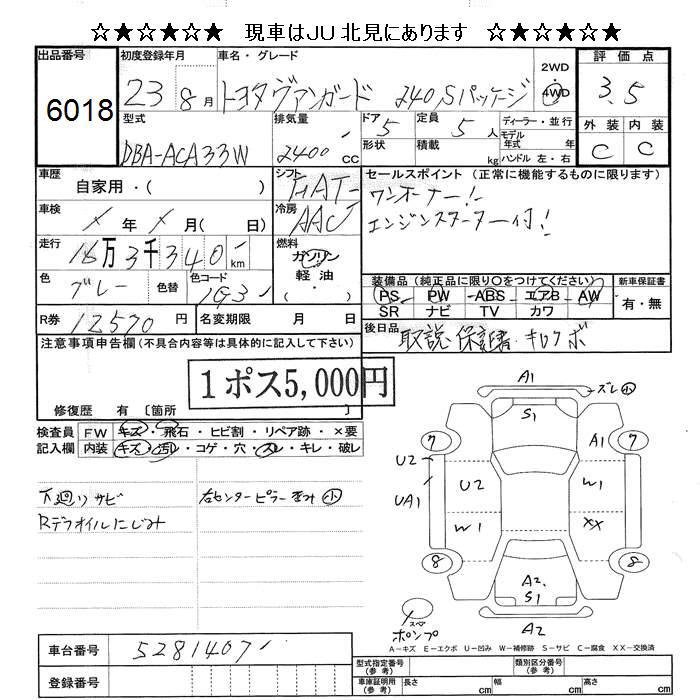 ☆★☆★☆★ 現車はJU北見にあります ☆★☆★☆★
出品番号 初度登録年月 車名・グレード 2WD 評価点
6018 23 8月 トヨタヴァンガード 240 Sパッケージ 4WD 3.5
型式 排気量 ドア 定員 ディーラー・並行 外装 内装
DBA-ACA33W 2400 CC 5 5人 モデル年式 年 C C
形状 積載 kg ハンドル 左・右
車歴 シフト セールスポイント (正常に機能するものに限ります)
自家用・( ) FAT ワンオーナー!
車検 冷房 エンジンスターター付!
X年 X月( 日) AAC
走行 燃料
16万3千340 km ガソリン・軽油・
装備品 (純正品に限り○をつけてください) 新車保証書
色 色替 色コード PS PW ABS エアB AW 有・無
グレー 1G3 SR ナビ TV カワ
R券 12570円 名変期限 月 日 後日品 取説・保証書・キロクボ
注意事項申告欄(不具合内容等は具体的に記入して下さい)
1ポス5,000円
修復歴 有〔箇所 〕
検査員 FW キズ・飛石・ヒビ割・リペア跡・×要
記入欄 内装 キズ・汚れ・コゲ・穴・スレ・キレ・破レ
下廻りサビ 右センターピラー 小
Rデフオイルにじみ
A1 ズレ 小
S1
7 A1 7
U2 U2 W1
UA1 W1 XX
8 A2 8
S1
A2
スペア ポンプ
A-キズ E-エクボ U-凹み W-補修跡 S-サビ C-腐食 XX-交換済
車台番号 5281407
型式指定番号(参考) 類別区分番号(参考)
登録番号 車庫証明用(参考) 長さ cm 幅 cm 高さ cm